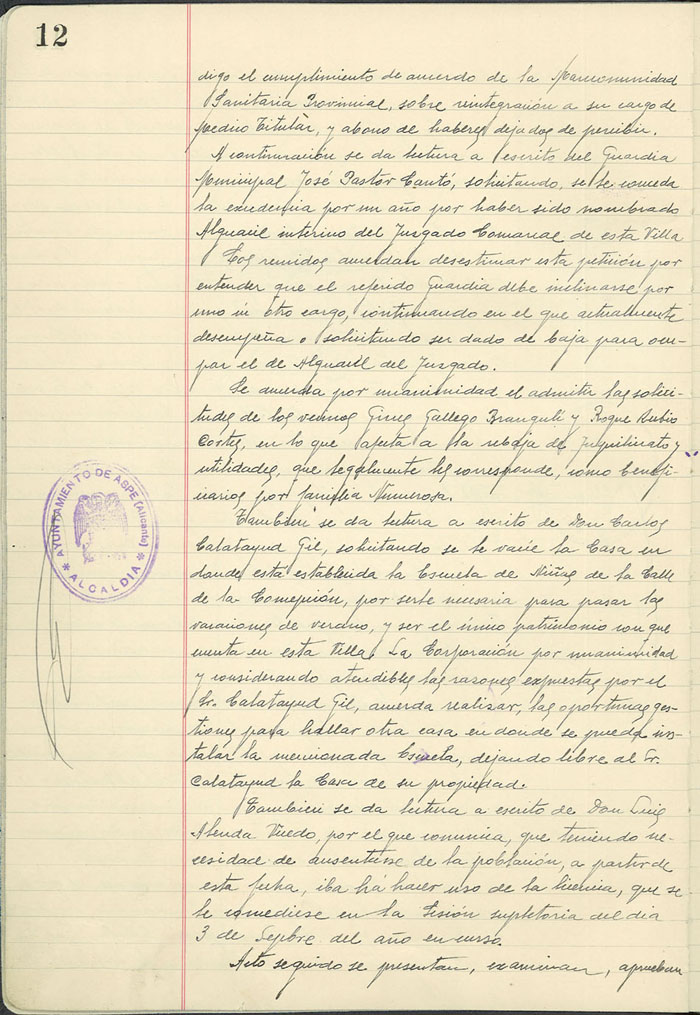 12
digo el cumplimiento de acuerdo de la Mancomunidad
Sanitaria Provincial, sobre reintegración a su cargo de
Medico Titular, y abono de haberes dejados de percibir.
A continuación se da lectura a escrito del Guardia
Municipal José Pastor Cantó, solicitando, se le conceda
la excedencia por un año por haber sido nombrado
Alguacil interino del Juzgado Comarcal de esta Villa
Los reunidos acuerdan desestimar esta petición por
entender que el referido Guardia debe inclinarse por
uno u otro cargo, continuando en el que actualmente
desempeña o solicitando ser dado de baja para ocu-
par el de Alguacil del Juzgado.
Se acuerda por unanimidad el admitir las solici-
tudes de los vecinos Gines Gallego Brangulí y Roque Rubio
Cortes, en lo que afecta a la rebaja de Inquilinato y
utilidades, que legalmente les corresponde, como benefi-
ciarios por familia Numerosa.
Tambien se da lectura a escrito de Don Carlos
Calatayud Gil, solicitando se le vacie la Casa en
donde esta establecida la Escuela de Niñas de la Calle
de la Concepción, por serle necesaria para pasar las
vacaciones de verano, y ser el único patrimonio con que
cuenta en esta Villa. La Corporación por unanimidad
y considerando atendibles las razones expuestas por el
Sr. Calatayud Gil, acuerda realizar, las oportunas ges-
tiones para hallar otra casa en donde se pueda ins-
talar la mencionada Escuela, dejando libre al Sr.
Calatayud la Casa de su propiedad.
Tambien se da lectura a escrito de Don Luis
Abenda Viredo, por el que comunica, que teniendo ne-
cesidad de ausentarse de la población, a partir de
esta fecha, iba há hacer uso de la licencia, que se
le concediese en la Sesión supletoria del dia
3 de Sepbre. del año en curso.
Acto seguido se presentan, examinan, aprueban
AYUNTAMIENTO DE ASPE (Alicante)
ALCALDIA